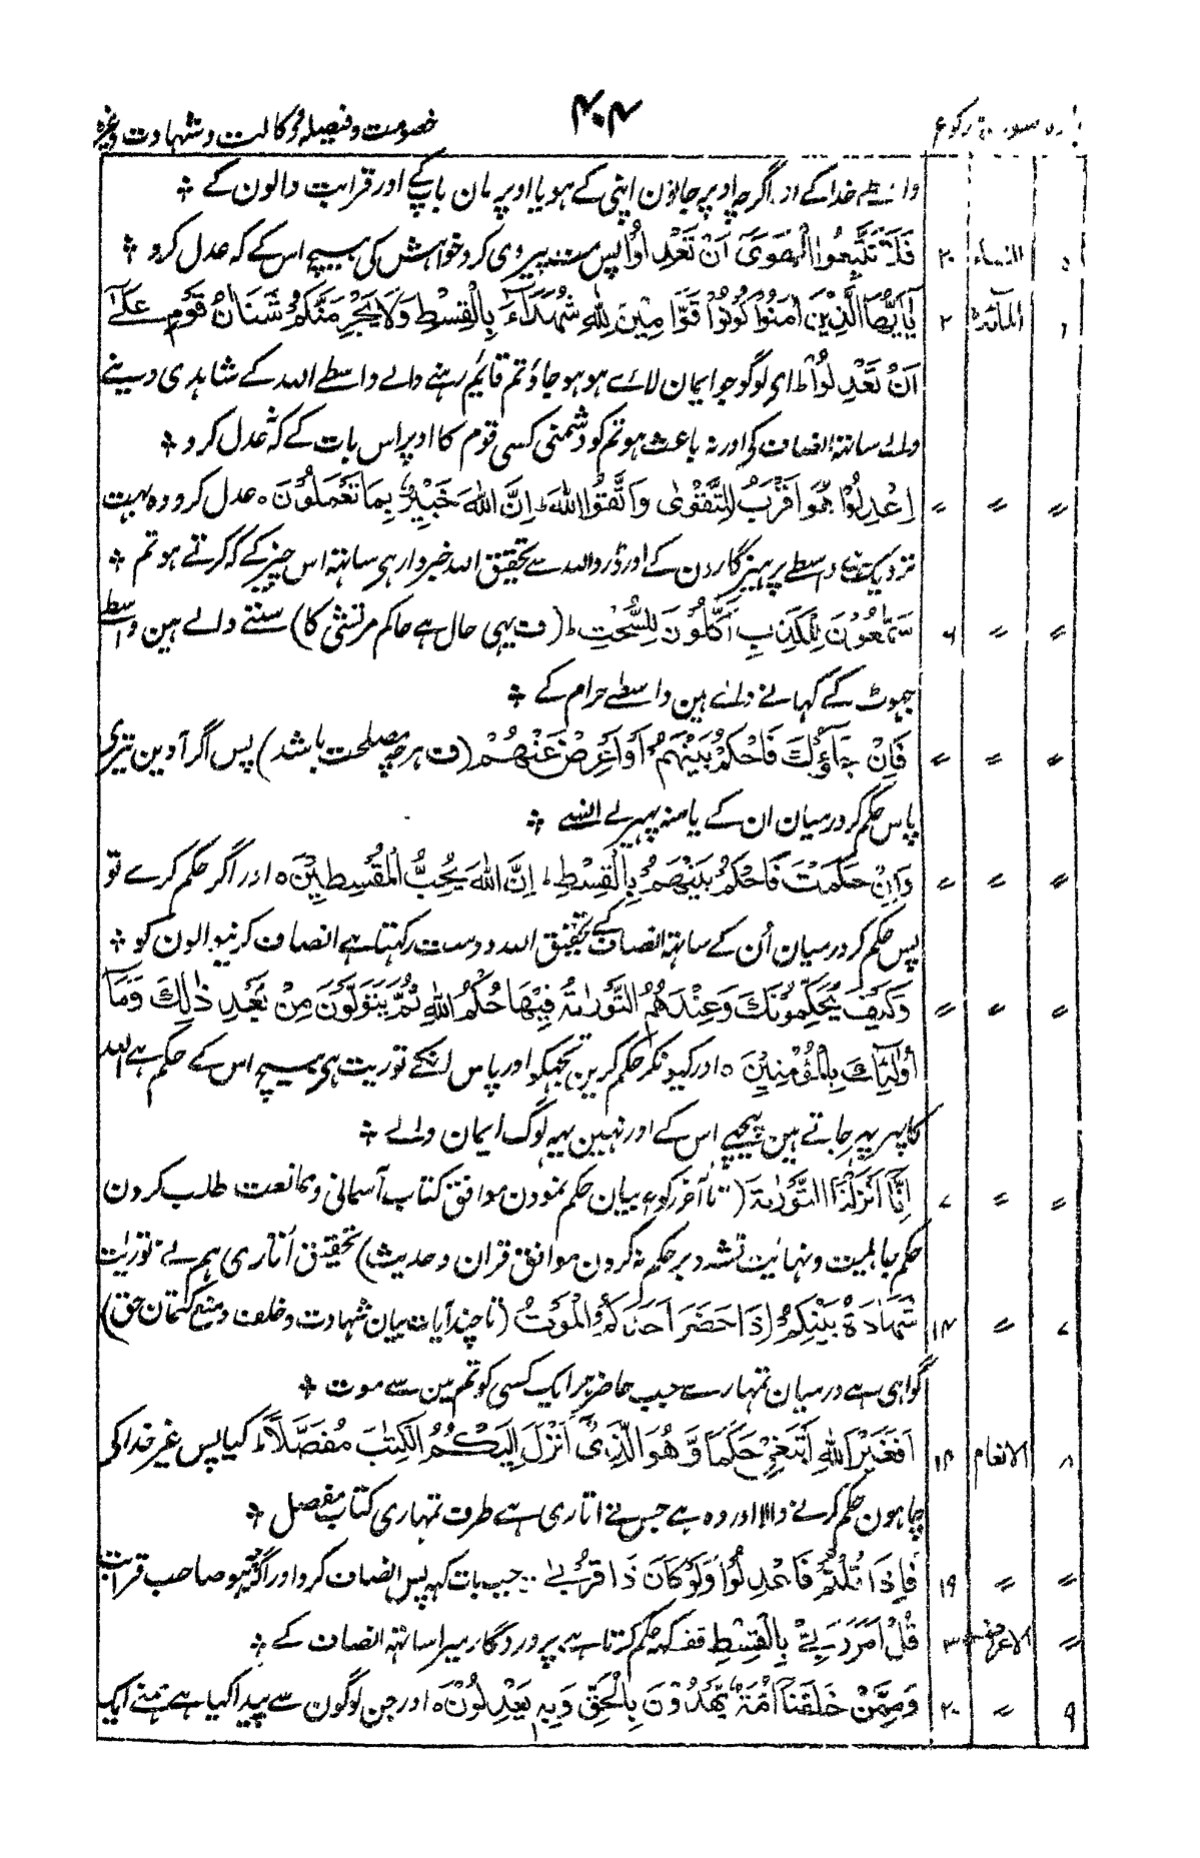 پارہ سورۃ رکوع ۴۰۴ خصومت و فیصلہ و وکالت و شہادت وغیرہ
واسطے خدا کے اور اگرچہ اوپر جاؤن اپنی کے ہو یا اوپر مان باپ کے اور قرابت والون کے ؞
۵ النساء ۲۰ فَلَا تَتَّبِعُوا الْهَوَىٰٓ اَنْ تَعْدِلُوْا پس مت پیروی کرو خواہش کی بیچ اس کے کہ عدل کرو ؞
۶ المآئدۃ ۲ یٰٓاَیُّهَا الَّذِیْنَ اٰمَنُوْا كُوْنُوْا قَوّٰمِیْنَ لِلّٰهِ شُهَدَآءَ بِالْقِسْطِ وَلَا یَجْرِمَنَّكُمْ شَنَاٰنُ قَوْمٍ عَلٰٓی
اَنْ تَعْدِلُوْا ط ای لوگو جو ایمان لائے ہو ہو جاؤ تم قایم رہنے والے واسطے اللہ کے شاہدی دینے
والے ساتہہ انصاف کی اور نہ باعث ہو تم کو دشمنی کسی قوم کا اوپر اس بات کے کہ عدل کرو ؞
〃 〃 〃 اِعْدِلُوْا هُوَ اَقْرَبُ لِلتَّقْوٰی وَاتَّقُوا اللّٰهَ ط اِنَّ اللّٰهَ خَبِیْرٌۢ بِمَا تَعْمَلُوْنَ ہ عدل کرو وہ بہت
نزدیک ہے واسطے پرہیزگارون کے اور ڈرو اللہ سے تحقیق اللہ خبردار ہی ساتہہ اس چیز کے کہ کرتے ہو تم ؞
〃 〃 ۶ سَمّٰعُوْنَ لِلْكَذِبِ اَكّٰلُوْنَ لِلسُّحْتِ ط (ف یہی حال ہے حاکم مرتشی کا) سننے والے ہین واسطے
جہوٹ کے کہانے والے ہین واسطے حرام کے ؞
〃 〃 〃 فَاِنْ جَآءُوْكَ فَاحْكُمْ بَیْنَهُمْ اَوْ اَعْرِضْ عَنْهُمْ (ف ہرچہ مصلحت باشد) پس اگر آوین تیری
پاس حکم کر درمیان ان کے یا منہ پہیر لے انسے ؞
〃 〃 〃 وَاِنْ حَكَمْتَ فَاحْكُمْ بَیْنَهُمْ بِالْقِسْطِ ط اِنَّ اللّٰهَ یُحِبُّ الْمُقْسِطِیْنَ ہ اور اگر حکم کرے تو
پس حکم کر درمیان اُن کے ساتہہ انصاف کے تحقیق اللہ دوست رکہتا ہے انصاف کرنیوالون کو ؞
〃 〃 〃 وَكَیْفَ یُحَكِّمُوْنَكَ وَعِنْدَهُمُ التَّوْرٰىةُ فِیْهَا حُكْمُ اللّٰهِ ثُمَّ یَتَوَلَّوْنَ مِنْۢ بَعْدِ ذٰلِكَ وَمَآ
اُولٰٓئِكَ بِالْمُؤْمِنِیْنَ ہ اور کیونکر حکم کرین تجہکو اور پاس انکے توریت ہی بیچ اس کے حکم ہے اللہ
کا پہر پہر جاتے ہین پیچہے اس کے اور نہین یہہ لوگ ایمان والے ؞
〃 〃 ۷ اِنَّآ اَنْزَلْنَا التَّوْرٰىةَ (تا آخر رکوع بیان حکم نمودن موافق کتاب آسمانی و ممانعت طلب کردن
حکم جاہلیت و نہایت تشدد بر حکم نہ کردن موافق قران و حدیث) تحقیق اُتاری ہم نے توریت
۷ 〃 ۱۴ شَهَادَةُ بَیْنِكُمْ اِذَا حَضَرَ اَحَدَكُمُ الْمَوْتُ (تا چند آیات بیان شہادت و حلف و منع کتمان حق)
گواہی ہے درمیان تمہارے جب حاضر ہو ایک کسی کو تم مین سے موت ؞
۸ الانعام ۱۴ اَفَغَیْرَ اللّٰهِ اَبْتَغِیْ حَكَمًا وَّهُوَ الَّذِیْٓ اَنْزَلَ اِلَیْكُمُ الْكِتٰبَ مُفَصَّلًا ط کیا پس غیر خدا کی
چاہون حکم کرنے والا اور وہ ہے جس نے اتاری ہے طرف تمہاری کتاب مفصل ؞
〃 〃 ۱۹ فَاِذَا قُلْتُمْ فَاعْدِلُوْا وَلَوْ كَانَ ذَا قُرْبٰی .. جب بات کہو پس انصاف کرو اور اگرچہ ہو صاحب قرابت
〃 الاعراف ۳ قُلْ اَمَرَ رَبِّیْ بِالْقِسْطِ قف کہہ حکم کرتا ہے پروردگار میرا ساتہہ انصاف کے ؞
۹ 〃 ۲۰ وَمِمَّنْ خَلَقْنَآ اُمَّةٌ یَّهْدُوْنَ بِالْحَقِّ وَبِهٖ یَعْدِلُوْنَ ہ اور جن لوگون سے پیدا کیا ہے ہمنے ایک